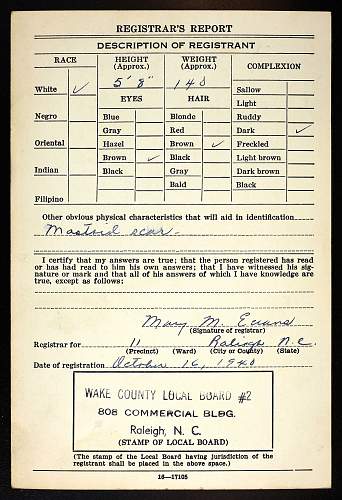 REGISTRAR'S REPORT
DESCRIPTION OF REGISTRANT
RACE
HEIGHT (Approx.)
WEIGHT (Approx.)
COMPLEXION
White ✓
5' 8"
140
Sallow
Light
EYES
HAIR
Negro
Blue
Blonde
Ruddy
Gray
Red
Dark ✓
Oriental
Hazel
Brown ✓
Freckled
Brown ✓
Black
Light brown
Indian
Black
Gray
Dark brown
Bald
Black
Filipino
Other obvious physical characteristics that will aid in identification
Mastoid scar
I certify that my answers are true; that the person registered has read
or has had read to him his own answers; that I have witnessed his sig-
nature or mark and that all of his answers of which I have knowledge are
true, except as follows:
Mary M. Evans
(Signature of registrar)
Registrar for 11 Raleigh N.C.
(Precinct) (Ward) (City or County) (State)
Date of registration October 16, 1940
WAKE COUNTY LOCAL BOARD #2
808 COMMERCIAL BLDG.
Raleigh, N. C.
(STAMP OF LOCAL BOARD)
(The stamp of the Local Board having jurisdiction of the
registrant shall be placed in the above space.)
16—17105